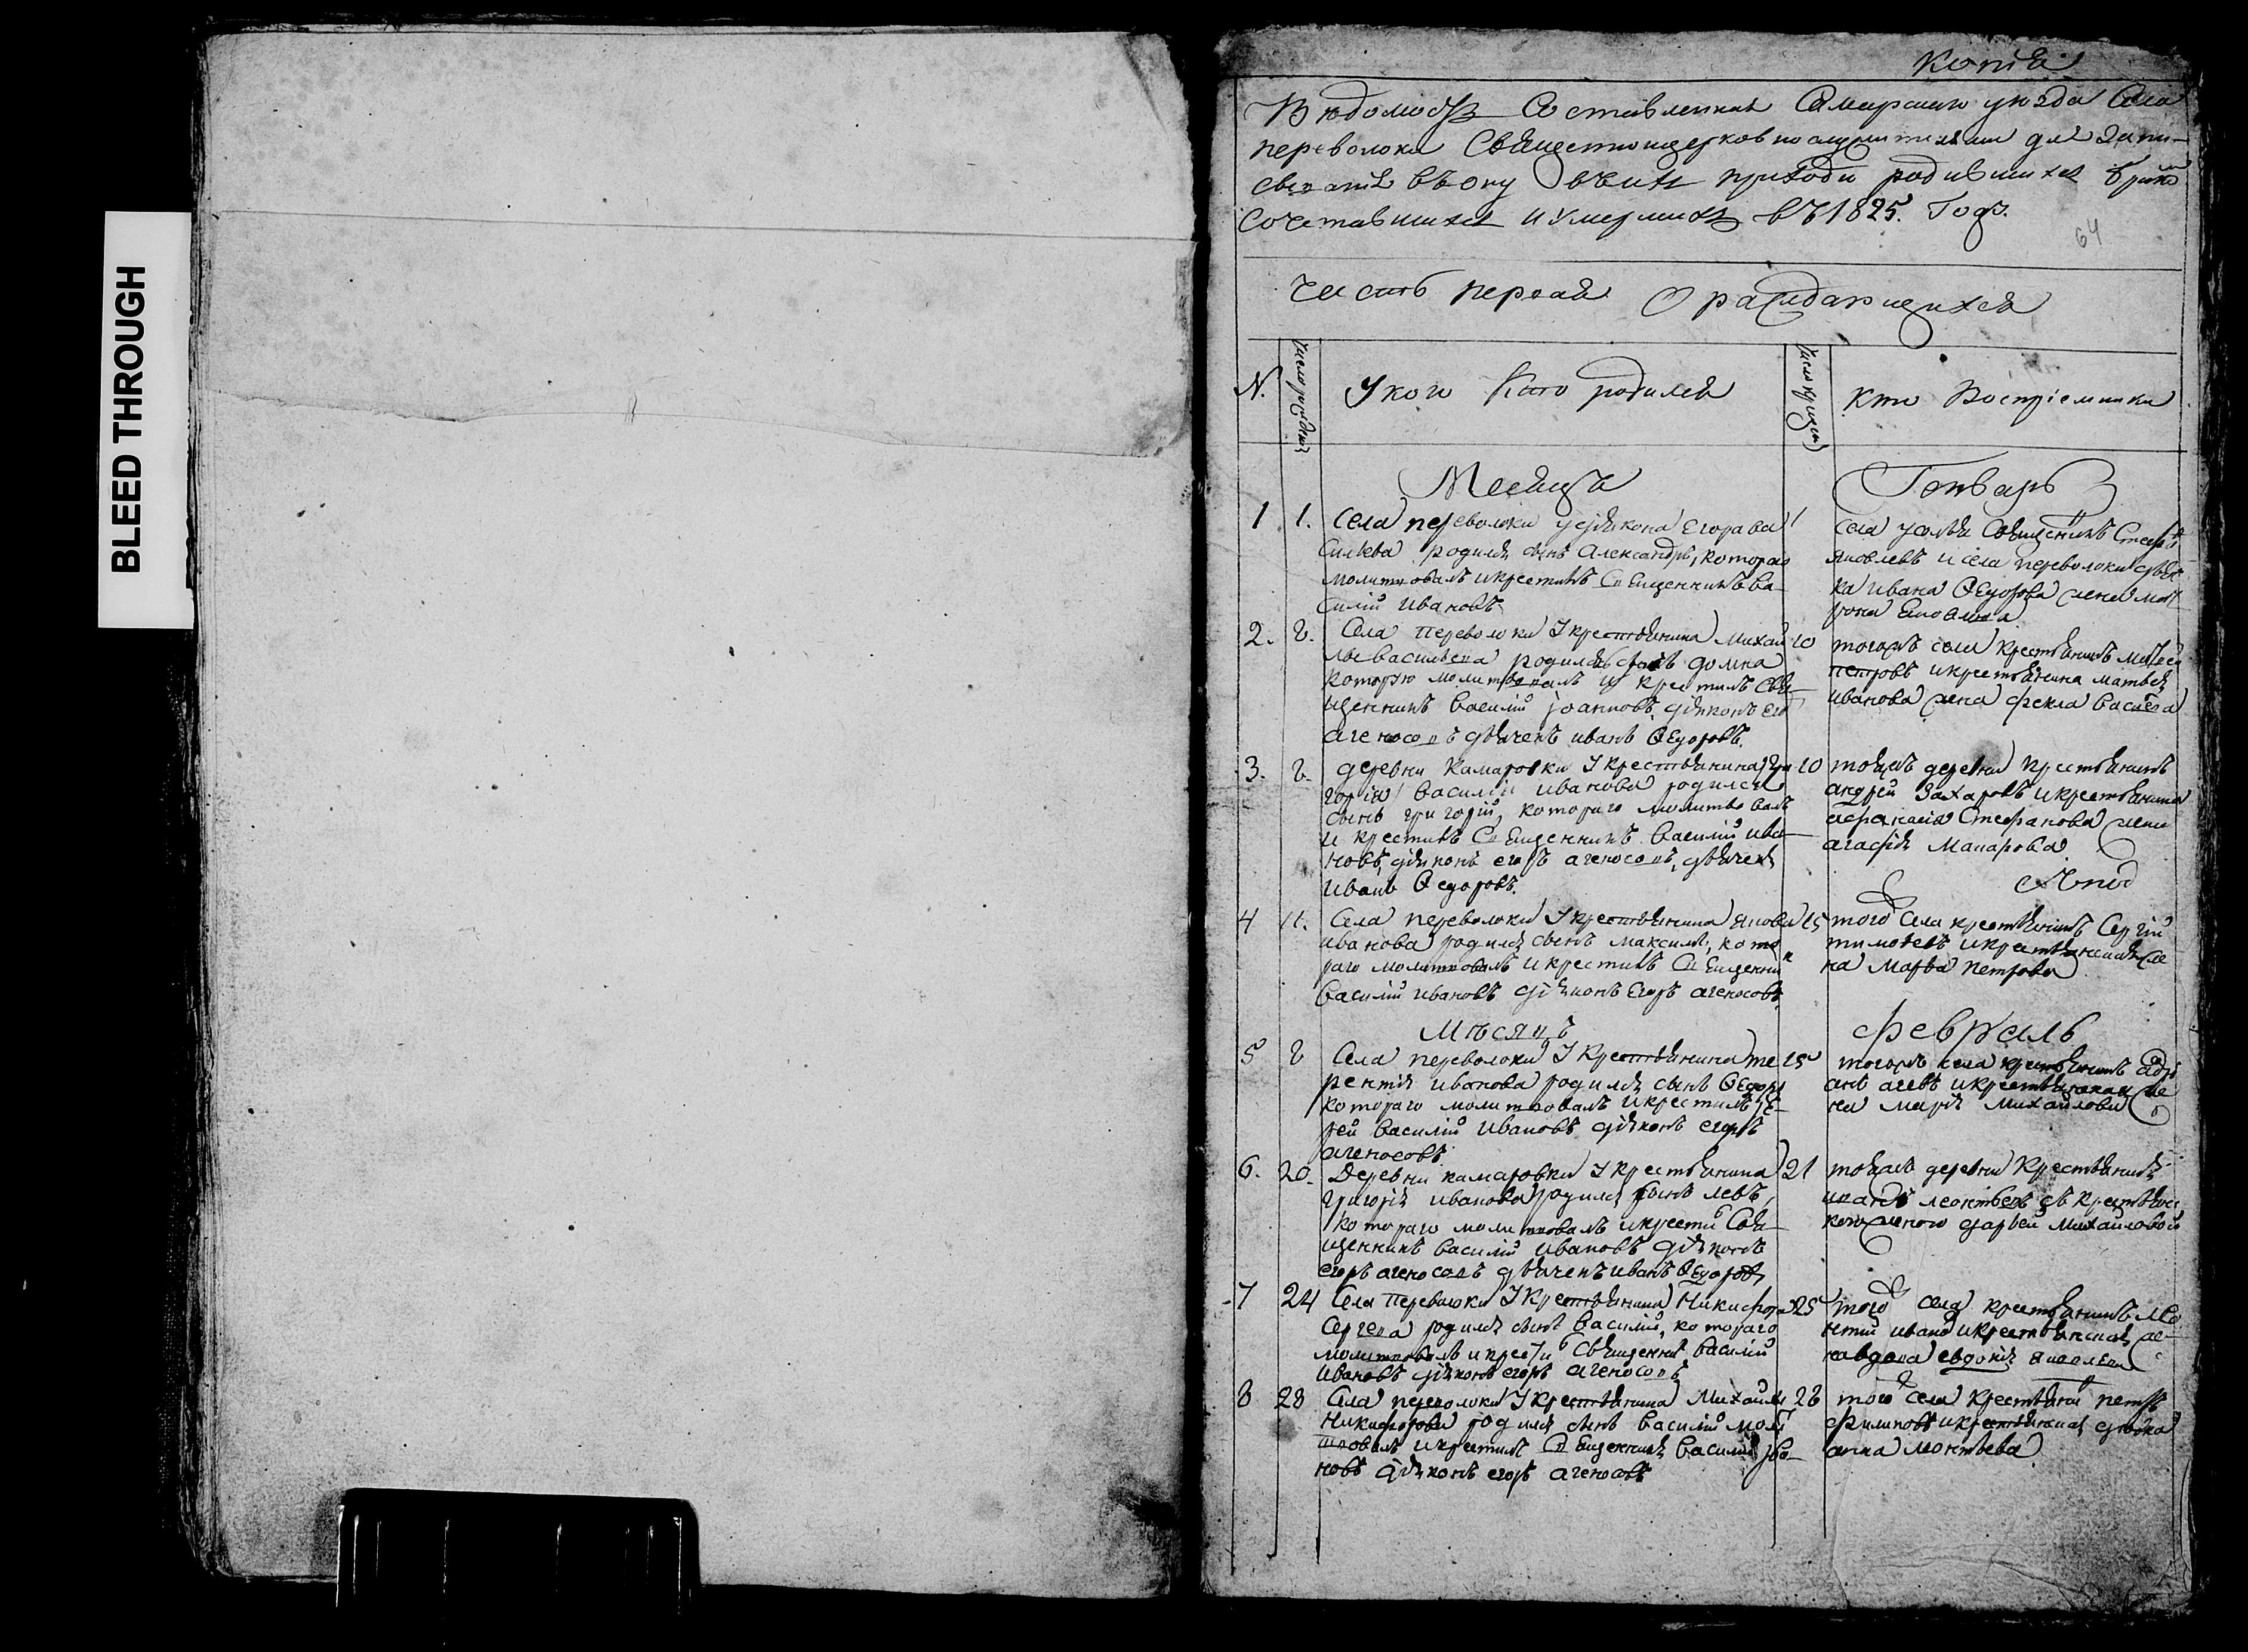 BLEED THROUGH
Копія
Вѣдомость Составленная Самарскаго уѣзда Села
переволоки Священноцерковнослужителями для Запи-
сыванія въ ону въ ихъ приходѣ родившихся брако
Сочетавшихся и умершихъ въ 1825. Годѣ.
64
Часть первая О раждающихся
N.
Число рожденія
У кого Кто родился
Число крещенія
Кто Воспріемники
Месяцъ Генварь
1 1. Села переволоки у діякона Егора Ва 1
сильева родился сынъ Александръ, котораго
молитвовалъ и крестилъ Священникъ Ва-
силій Ивановъ
села усолья Священникъ Стефанъ
Яковлевъ и села переволоки дьяч
ка Ивана Ѳедорова жена мат
рона
2. 8. Села переволоки У крестьянина Михаи 10
лы Васильева родилась дочь домна
которую молитвовалъ и крестилъ Свя-
щенникъ Василій Іоанновъ діяконъ его
агеносовъ дьячекъ иванъ Ѳедоровъ.
тогожъ села крестьянинъ
петровъ и крестьянина матвея
иванова жена фекла васильева
3. 8. деревни Камаровки У крестьянина гри 10
горія Василій Иванова родился
сынъ григорій, котораго молитвовалъ
и крестилъ Священникъ Василій Ива-
новъ, діяконъ егоръ агеносовъ, дьячекъ
Иванъ Ѳедоровъ.
тояжъ деревни крестьянинъ
андрей Захаровъ и крестьянина
афанасія Стефанова жена
агафія Макарова
4 11. Села переволоки У крестьянина якова 15
иванова родился сынъ максимъ, кото
раго молитвовалъ и крестилъ Священникъ
Василій Ивановъ діяконъ Егоръ агеносовъ
того села крестьянинъ Сергій
тимофеевъ и крестьянская же
на Марфа петрова
Мѣсяцъ февраль
5 8 Села переволоки У Крестьянина те 15
рентія иванова родился сынъ Ѳедоръ
котораго молитвовалъ и крестилъ іе-
рей Василій Ивановъ діяконъ егоръ
агеносовъ
тогожъ села крестьянинъ адрі
анъ агевъ и крестьянская же
на марія Михайлова
6. 20. Деревни камаровки У крестьянина 21
григорія иванова родился сынъ левъ,
котораго молитвовалъ и крести Свя-
щенникъ Василій Ивановъ діяконъ
егоръ агеносовъ дьячекъ иванъ Ѳедоровъ
тояжъ деревни Крестьянинъ
иванъ леонтьевъ съ крестьянс
кою женою дарьей Михайловой
7 24 Села Переволоки У Крестьянина Никифора 25
Сергева родился сынъ Василій, котораго
молитвовалъ и крести Священни Василій
Ивановъ діяконъ егоръ агеносовъ
того села крестьянинъ ле
нтій ивано и крестьянская же
на вдова евдокія
8 28 Села переволоки У Крестьянина Михаилы 28
Никифорова родился сынъ Василій мол
твовалъ и крестилъ Священникъ Василій Ива-
новъ діяконъ егоръ агеносовъ
того села крестьянинъ петръ
филиповъ и крестьянская дѣвка
анна леонтьева